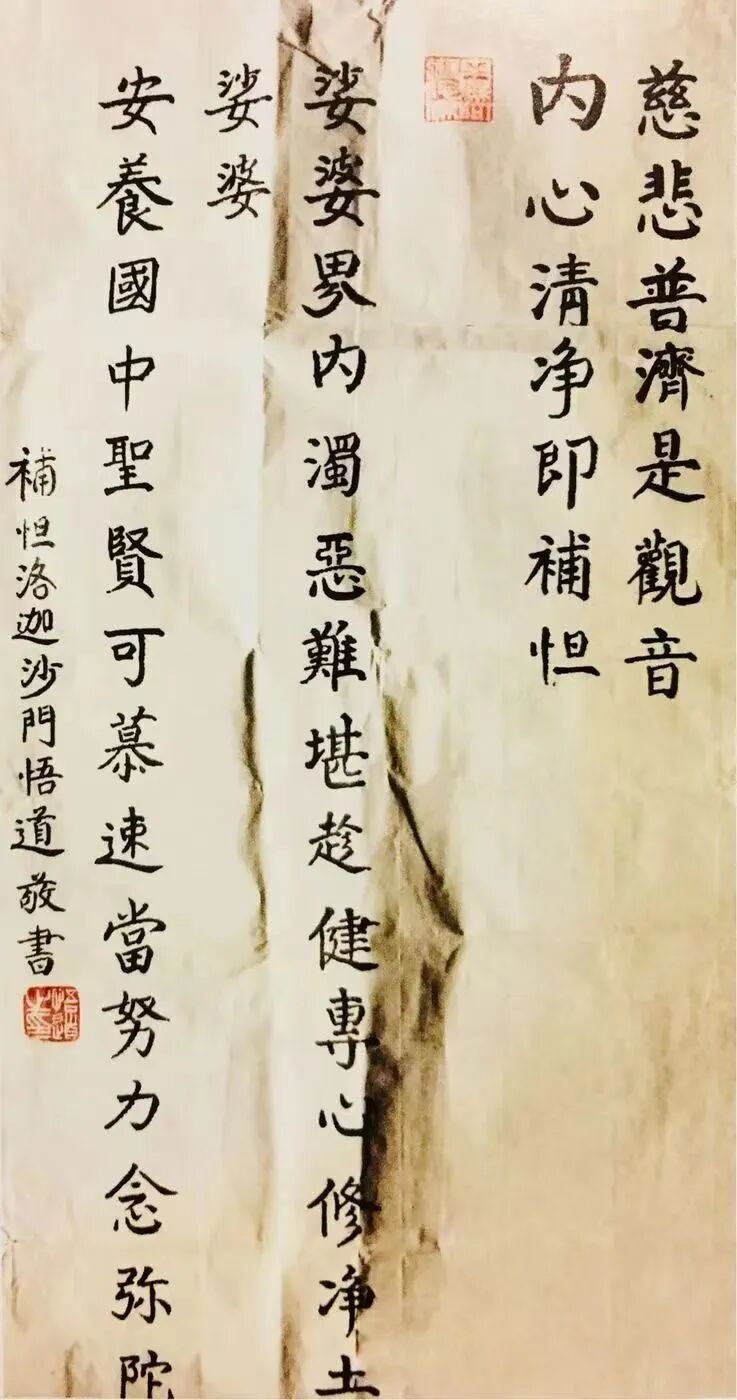 慈悲普濟是觀音
内心清净即補怛
娑婆界内濁惡難堪趁健專心修净土
娑婆
安養國中聖賢可慕速當努力念弥陀
補怛洛迦沙門悟道敬書